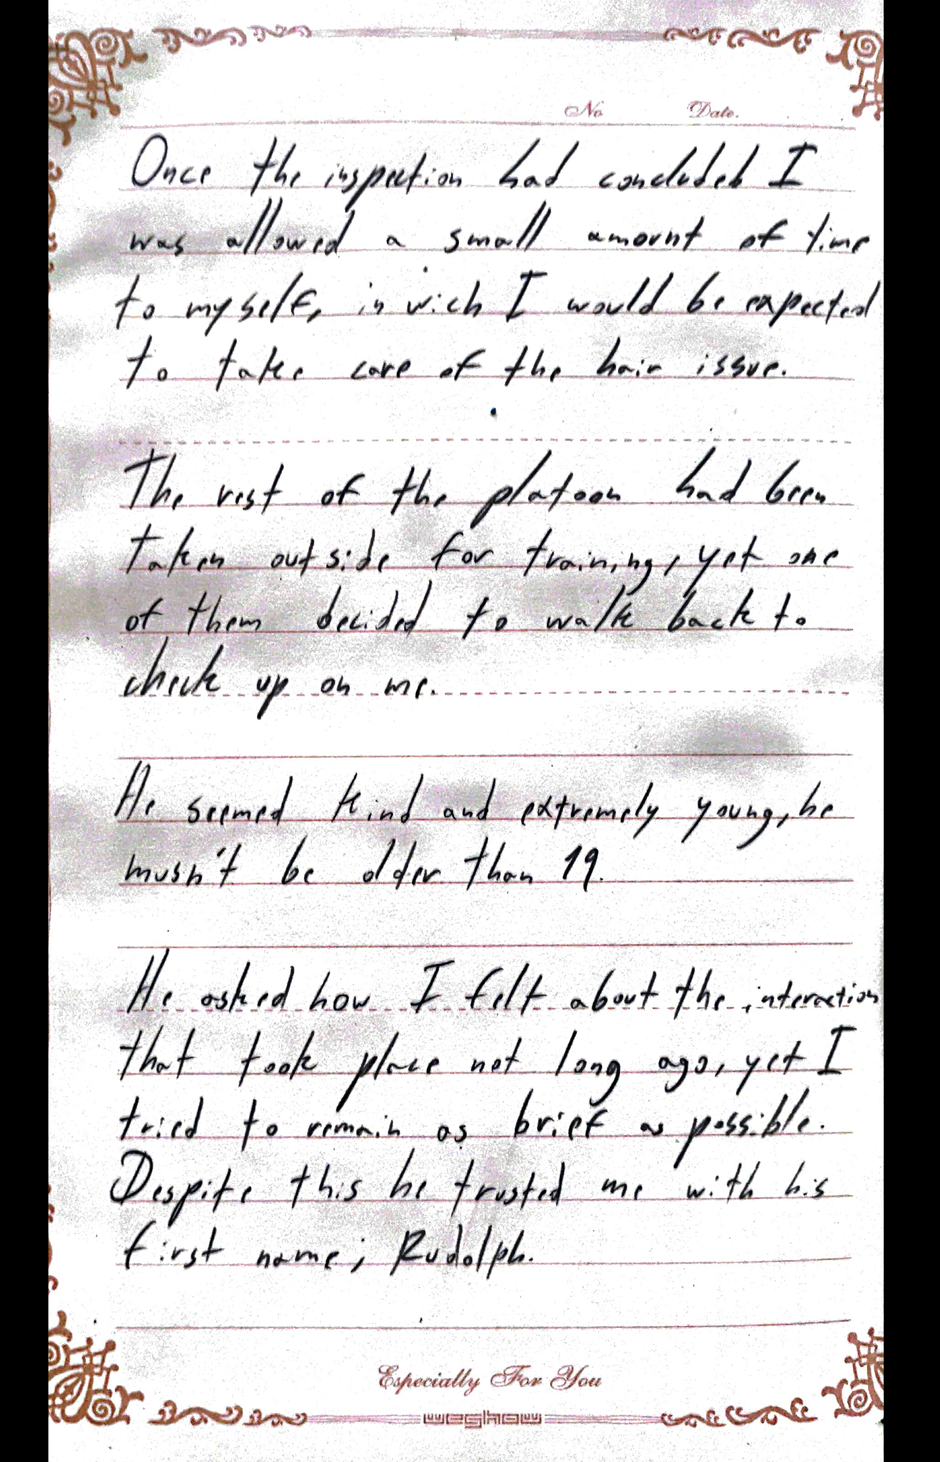 No Date.
Once the inspection had concluded I
was allowed a small amount of time
to myself, in wich I would be expected
to take care of the hair issue.
The rest of the platoon had been
taken outside for training, yet one
of them decided to walk back to
check up on me.
He seemed kind and extremely young, he
musn't be older than 19.
He asked how I felt about the interaction
that took place not long ago, yet I
tried to remain as brief as possible.
Despite this he trusted me with his
first name; Rudolph.
Especially For You